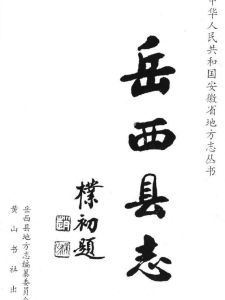 中华人民共和国安徽省地方志丛书
岳西县志
樸初题
岳西县地方志编纂委员会
黄山书社出